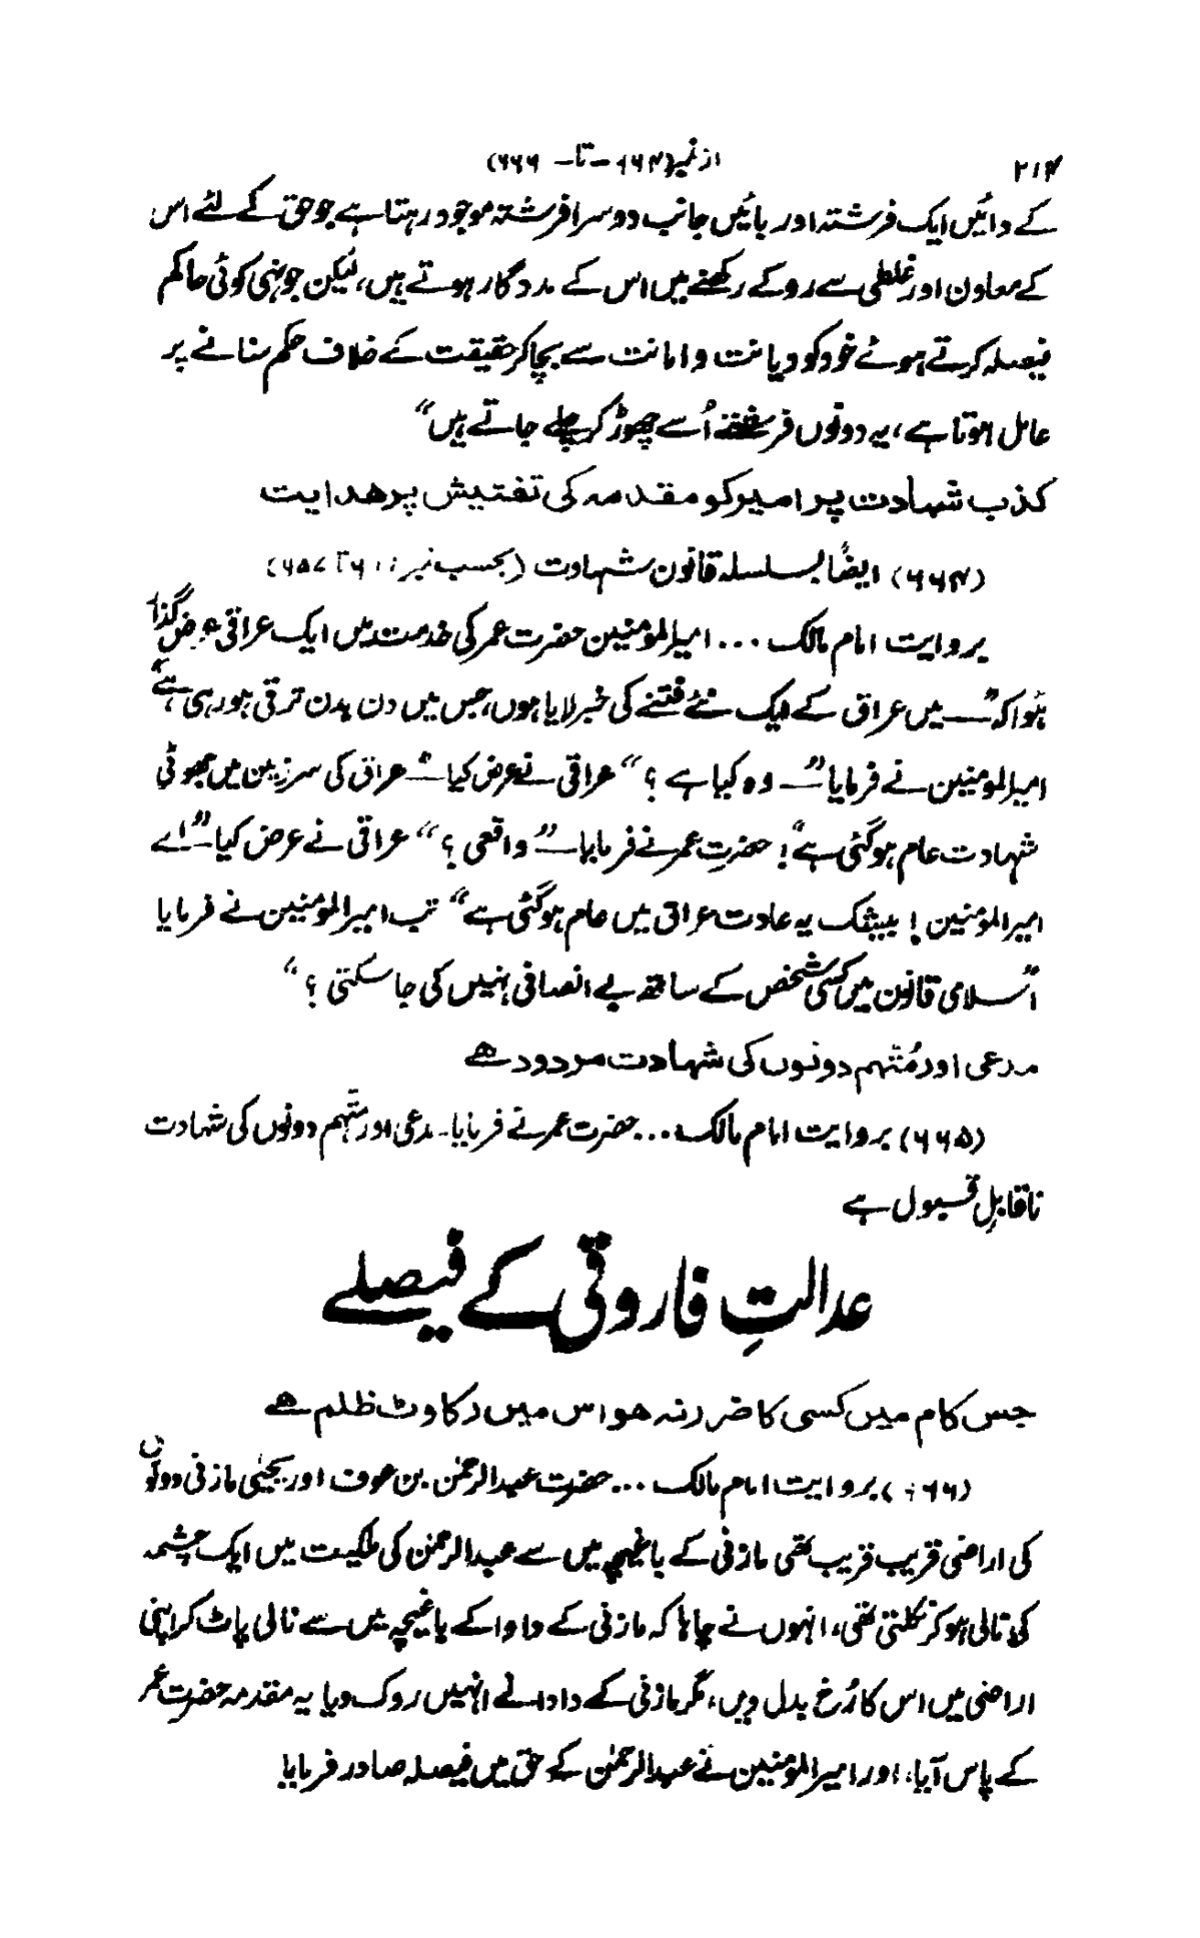 ۲۱۴ از نمبر (۶۶۴ – تا – ۶۶۶)
کے دائیں ایک فرشتہ اور بائیں جانب دوسرا فرشتہ موجود رہتا ہے جو حق کے لئے اس
کے معاون اور غلطی سے روکے رکھنے میں اس کے مددگار ہوتے ہیں، لیکن جونہی کوئی حاکم
فیصلہ کرتے ہوئے خود کو دیانت و امانت سے بچا کر حقیقت کے خلاف حکم سنانے پر
عامل ہوتا ہے، یہ دونوں فرشتے اُسے چھوڑ کر چلے جاتے ہیں“
کذب شہادت پر امیر کو مقدمہ کی تفتیش پر ھدایت
(۶۶۴) ایضًا بسلسلہ قانون شہادت (بحسب نمبر: ۶۱۰ تا ۶۵۷)
بروایت امام مالک ... امیرالمؤمنین حضرت عمر کی خدمت میں ایک عراقی عرض گذار
ہؤا کہ ”— میں عراق کے ایک نئے فتنے کی خبر لایا ہوں، جس میں دن بدن ترقی ہو رہی ہے“
امیرالمومنین نے فرمایا ”— وہ کیا ہے ؟“ عراقی نے عرض کیا —” عراق کی سرزمین میں جھوٹی
شہادت عام ہو گئی ہے“! حضرتِ عمر نے فرمایا —” واقعی ؟“ عراقی نے عرض کیا —”اے
امیرالمؤمنین ! بیشک یہ عادت عراق میں عام ہو گئی ہے“ تب امیرالمؤمنین نے فرمایا
”اسلامی قانون میں کسی شخص کے ساتھ بے انصافی نہیں کی جا سکتی ؟“
مدعی اور مُتّہم دونوں کی شہادت مردود ھے
(۶۶۵) بروایت امام مالک ... حضرت عمر نے فرمایا۔ مدعی اور متَّہم دونوں کی شہادت
ناقابلِ قبول ہے
عدالتِ فاروقی کے فیصلے
جس کام میں کسی کا ضرر نہ ھو اس میں رکاوٹ ظلم ھے
(۶۶۶) بروایت امام مالک ... حضرت عبدالرحمٰن بن عوف اور یحییٰ مازنی دونوں
کی اراضی قریب قریب تھی مازنی کے باغیچہ میں سے عبدالرحمٰن کی ملکیت میں ایک چشمہ
کی نالی ہو کر نکلتی تھی، انہوں نے چاہا کہ مازنی کے دادا کے باغیچہ میں سے نالی پاٹ کر اپنی
اراضی میں اس کا رُخ بدل دیں، مگر مازنی کے دادا نے انہیں روک دیا یہ مقدمہ حضرتِ عمر
کے پاس آیا، اور امیرالمؤمنین نے عبدالرحمٰن کے حق میں فیصلہ صادر فرمایا